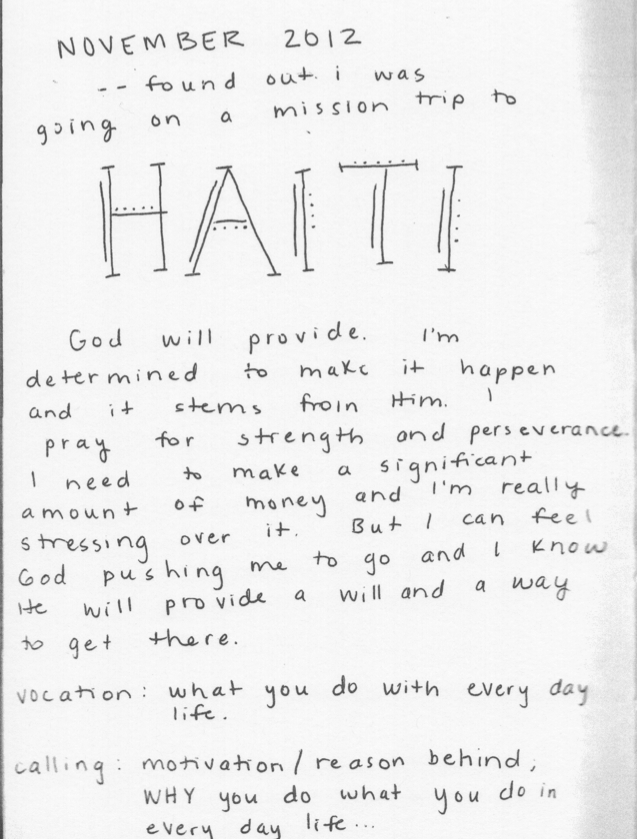 NOVEMBER 2012
-- found out i was
going on a mission trip to
HAITI
God will provide. I'm
determined to make it happen
and it stems from Him. I
pray for strength and perseverance.
I need to make a significant
amount of money and I'm really
stressing over it. But I can feel
God pushing me to go and I know
He will provide a will and a way
to get there.
vocation: what you do with every day
life.
calling: motivation/reason behind;
WHY you do what you do in
every day life...